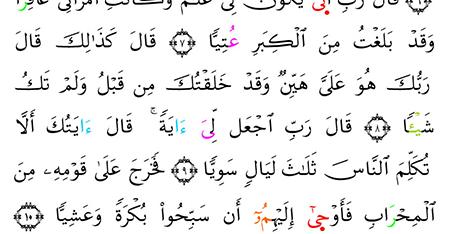 ٦ قَالَ رَبِّ أَنّٜىٰ يَكُونُ لِى غُلَٰمٌ وَكَانَتِ ٱمْرَأَتِى عَاقِرًا
وَقَدْ بَلَغْتُ مِنَ ٱلْكِبَرِ عُتِيًّا ٧ قَالَ كَذَٰلِكَ قَالَ
رَبُّكَ هُوَ عَلَىَّ هَيِّنٌ وَقَدْ خَلَقْتُكَ مِن قَبْلُ وَلَمْ تَكُ
شَيْـًٔا ٨ قَالَ رَبِّ ٱجْعَل لِّىَ ءَايَةً ۚ قَالَ ءَايَتُكَ أَلَّا
تُكَلِّمَ ٱلنَّاسَ ثَلَٰثَ لَيَالٍ سَوِيًّا ٩ فَخَرَجَ عَلَىٰ قَوْمِهِۦ مِنَ
ٱلْمِحْرَابِ فَأَوْحٜىٰٓ إِلَيْهِمُۥٓ أَن سَبِّحُوا۟ بُكْرَةً وَعَشِيًّا ١٠